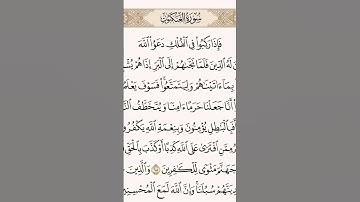 سُورَةُ العَنكَبُوتِ
فَإِذَا رَكِبُوا۟ فِى ٱلْفُلْكِ دَعَوُا۟ ٱللَّهَ
لَهُ ٱلدِّينَ فَلَمَّا نَجَّىٰهُمْ إِلَى ٱلْبَرِّ إِذَا هُمْ يُشْ
بِمَآ ءَاتَيْنَٰهُمْ وَلِيَتَمَتَّعُوا۟ فَسَوْفَ يَعْلَمُ
أَنَّا جَعَلْنَا حَرَمًا ءَامِنًا وَيُتَخَطَّفُ ٱلنَّ
أَفَبِٱلْبَٰطِلِ يُؤْمِنُونَ وَبِنِعْمَةِ ٱللَّهِ يَكْفُرُو
مِمَّنِ ٱفْتَرَىٰ عَلَى ٱللَّهِ كَذِبًا أَوْ كَذَّبَ بِٱلْحَقِّ
جَهَنَّمَ مَثْوًى لِّلْكَٰفِرِينَ ٦٨ وَٱلَّذِينَ
دِيَنَّهُمْ سُبُلَنَا وَإِنَّ ٱللَّهَ لَمَعَ ٱلْمُحْسِنِينَ